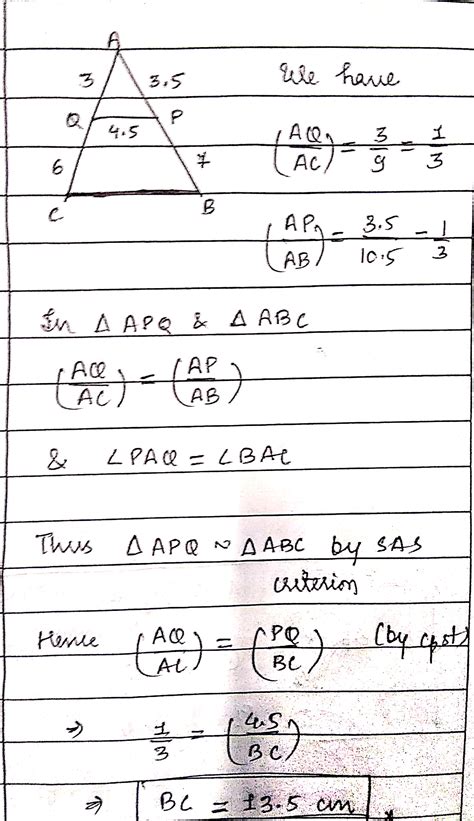 A
3 3.5
Q P
4.5
6 7
C B
We have
(AQ/AC) = 3/9 = 1/3
(AP/AB) = 3.5/10.5 = 1/3
In △APQ & △ABC
(AQ/AC) = (AP/AB)
& ∠PAQ = ∠BAC
Thus △APQ ~ △ABC by SAS
criterion
Hence (AQ/AC) = (PQ/BC) (by cpst)
⇒ 1/3 = (4.5/BC)
⇒ BC = 13.5 cm